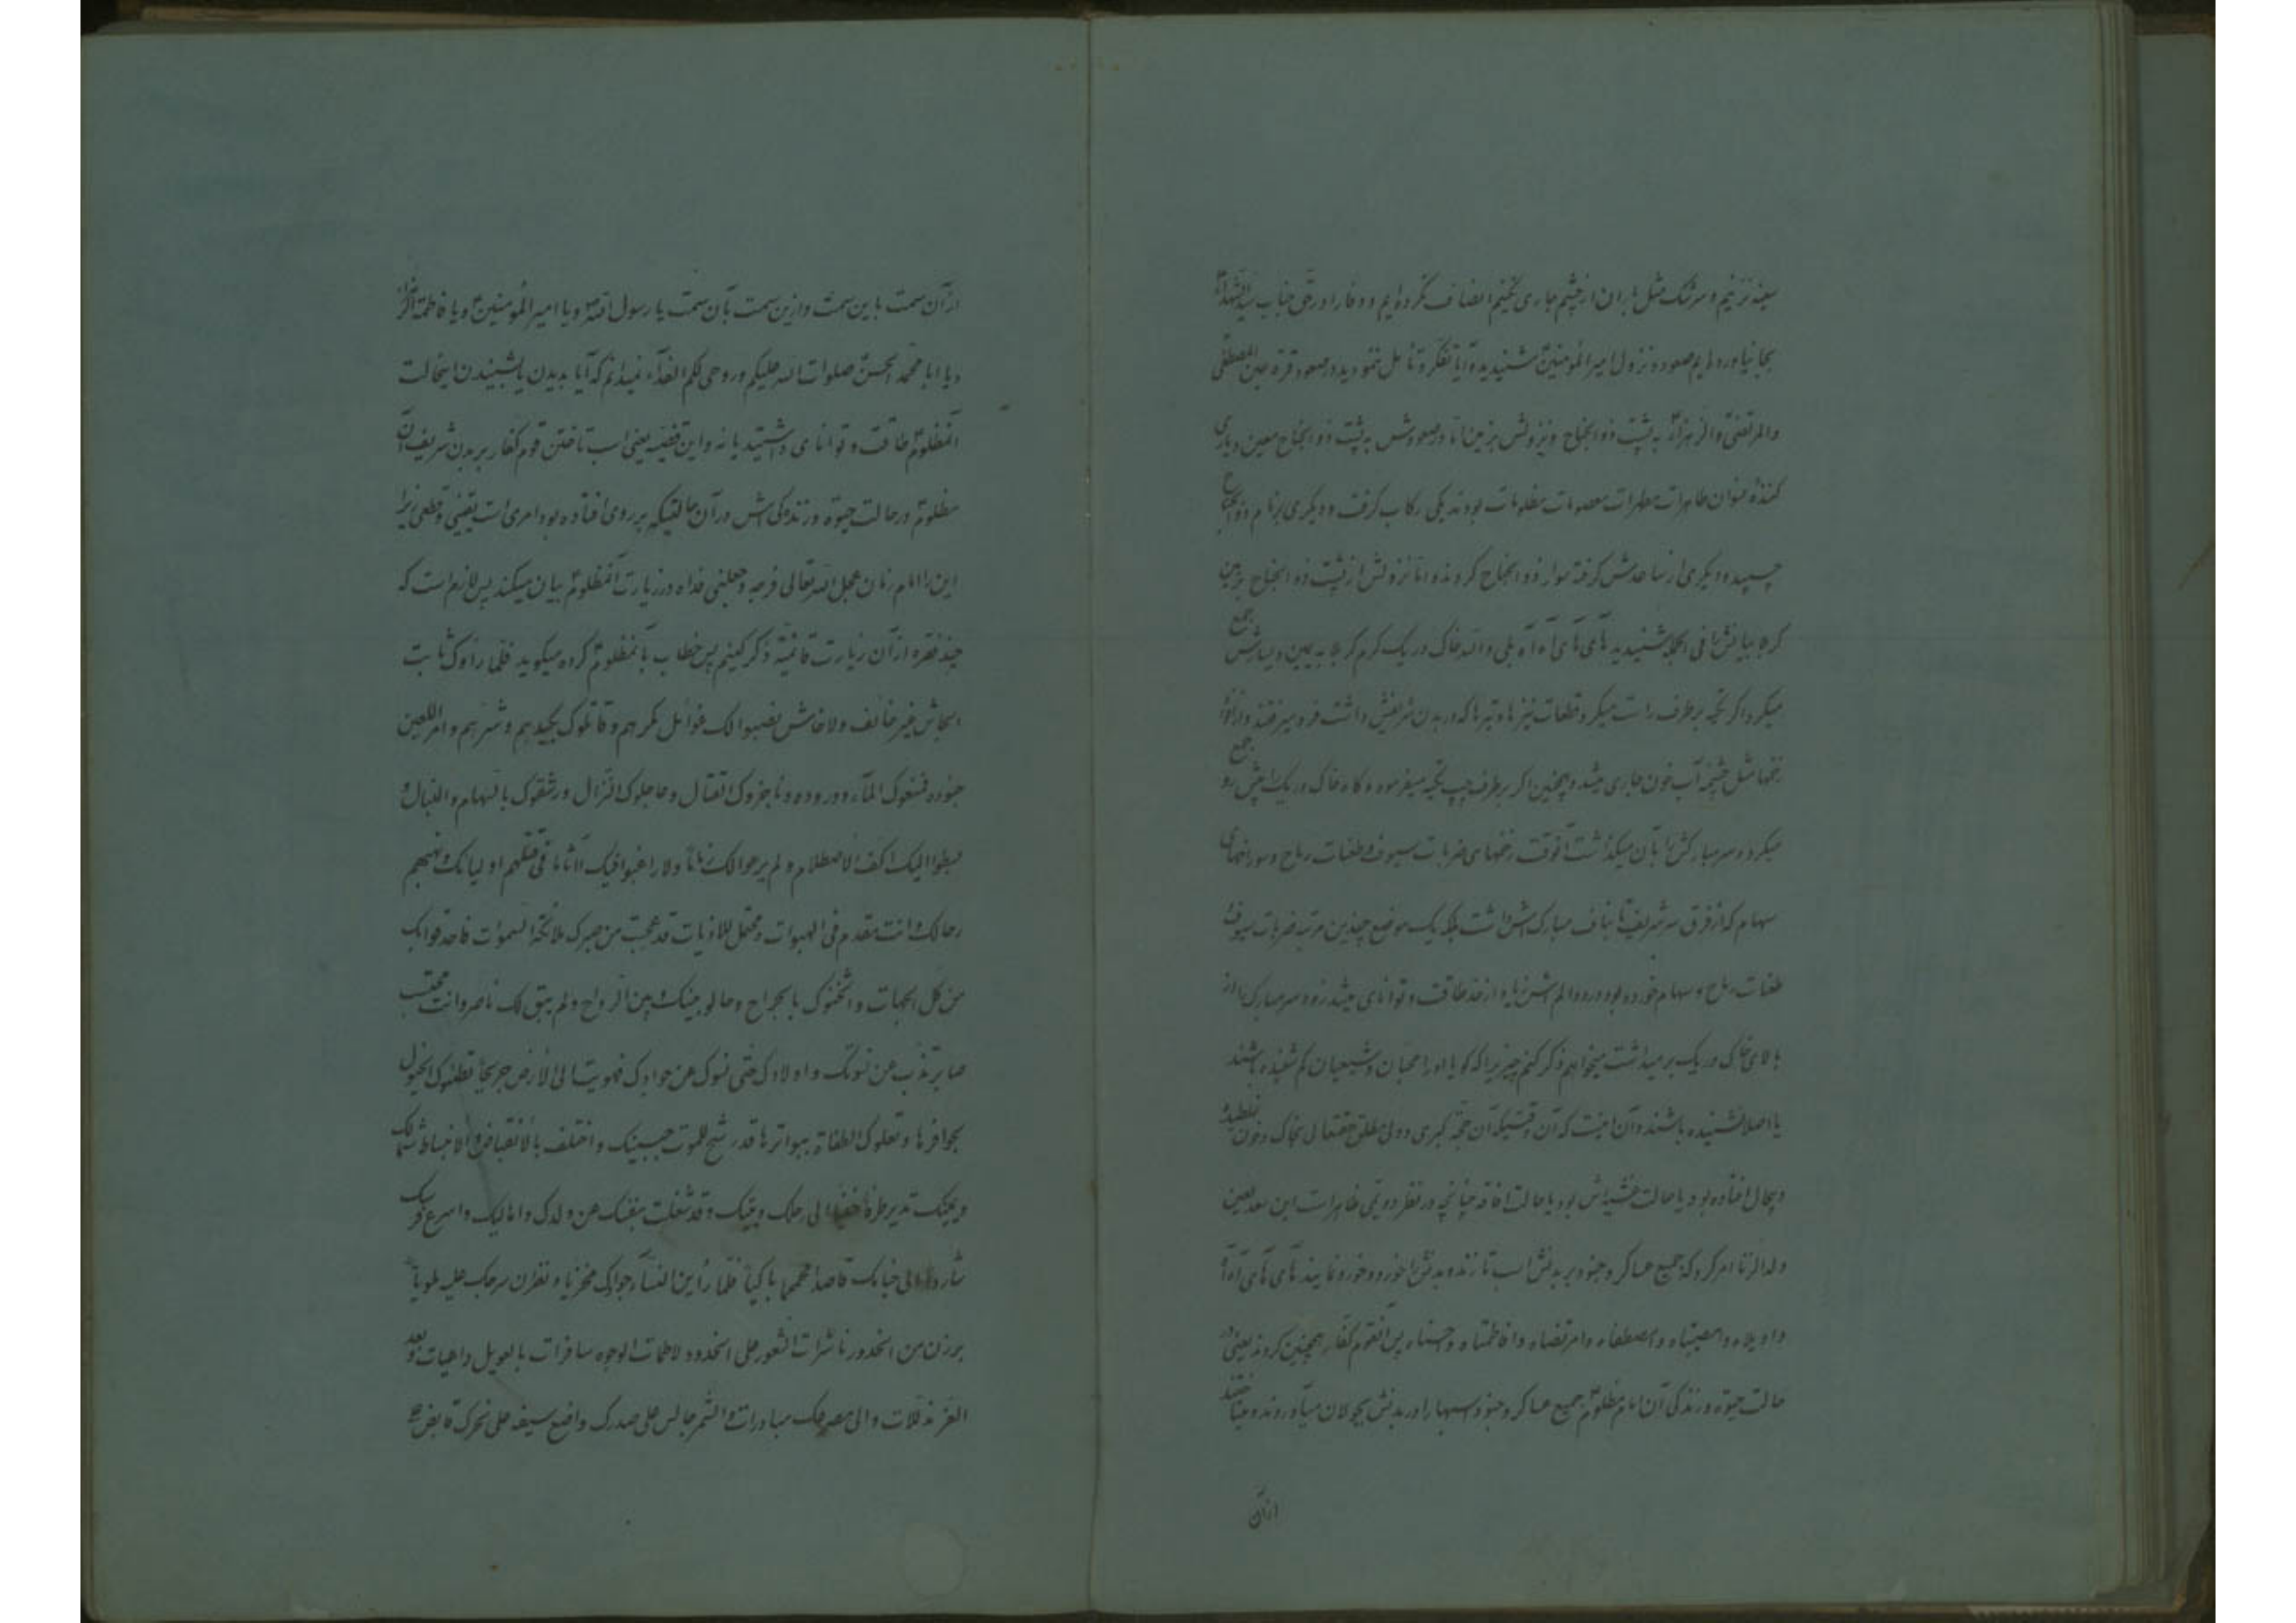 سینه نزنیم و سرشک مثل باران از چشم جاری نکنیم انصاف نکرده‌ایم و وفا را در حق جناب سیدالشهداء
بجا نیاورده‌ایم صعود و نزول امیرالمؤمنین شنیدید آیا تفکر و تأمل نمودید در صعود قرة عین المصطفی
والمرتضی والزهراء به پشت ذوالجناح و نزولش بزمین اما در صعودش به پشت ذوالجناح معین و یاری
کننده نسوان طاهرات مطهرات معصومات مظلومات بودند یکی رکاب گرفت و دیگری بزمام ذوالجناح
چسپیده و دیگری از ساعدش گرفته سوار ذوالجناح کردند و اما نزولش از پشت ذوالجناح بزمین
کربلا بیانش فی الجمله شنیدید های های آه آه بلی والله خاک و ریک گرم کربلا به یمین و یسارش جمع
میکرد اگر تکیه بر طرف راست میکرد قطعات نیزها و تیرها که در بدن شریفش داشت فرو میرفتند و از آن
زخمها مثل چشمه آب خون جاری میشد و همچنین اگر بر طرف چپ تکیه میفرمود و گاه خاک و ریک را پیش رو جمع
میکرد و سر مبارکش را بآن میگذاشت آنوقت زخمهای ضربات سیوف و طعنات رماح و سوراخهای
سهام که از فرق سر شریف تا بناف مبارکش داشت بلکه یک موضع چندین مرتبه ضربات سیوف
طعنات رماح و سهام خورده بود درد و المش زیاده از حد طاقت و توانای میشد زود سر مبارک را از
بالای خاک و ریک بر میداشت میخواهم ذکر کنم چیزیرا که گویا اورا محبان و شیعیان کم شنیده باشند
یا اصلا نشنیده باشند و آن اینست که آن وقتیکه آن حجة کبری و ولی مطلق حقتعالی بخاک و خون غلطیده
و بیحال افتاده بود یا حالت غشیه‌اش بود یا حالت افاقه چنانچه در نظر دویمی ظاهر است ابن سعد لعین
ولد الزنا امر کرد که جمیع عساکر و جنود بر بدنش اسب تازند و بدنش را خورد و خورد نمایند های های آه آه
واویلاه وامصیبتاه وامصطفاه وامرتضاه وافاطمتاه وحسناه پس آنقوم کفار همچنین کردند یعنی در
حالت حیوة و زندگی آن امام مظلوم جمیع عساکر و جنود اسبها را در بدنش بجولان میآوردند و میتاختند
ازآن
ازآن سمت باین سمت و ازین سمت بآن سمت یا رسول الله ویا امیرالمؤمنین ویا فاطمة الزهراء
ویا ابا محمد الحسن صلوات الله علیکم و روحی لکم الفداء نمیدانم که آیا بدیدن یا شنیدن اینحالت
آنمظلوم طاقت و توانای داشتید یا نه و این قضیه یعنی اسب تاختن قوم کفار بر بدن شریف آن
مظلوم در حالت حیوة و زندگی‌اش در آن حالتیکه بر روی افتاده بود امری است یقینی و قطعی زیرا
این را امام زمان عجل الله تعالی فرجه وجعلنی فداه در زیارت آنمظلوم بیان میکند پس لازم است که
چند فقره از آن زیارت قائمیه ذکر کنیم پس خطاب بآنمظلوم کرده میگوید فلما راوک ثابت
الجاش غیر خائف ولا خاش نصبوا لک غوائل مکرهم وقاتلوک بکیدهم وشرهم وامر اللعین
جنوده فمنعوک الماء ووروده وناجزوک القتال وعاجلوک النزال ورشقوک بالسهام والنبال و
بسطوا الیک اکف الاصطلام ولم یرعوا لک ذماما ولا راقبوا فیک اثاما فی قتلهم اولیائک ونهبهم
رحالک وانت مقدم فی الهبوات ومحتمل للاذیات قد عجبت من صبرک ملائکة السموات فاحدقوا بک
من کل الجهات واثخنوک بالجراح وحالوا بینک وبین الرواح ولم یبق لک ناصر وانت محتسب
صابر تذب عن نسوتک واولادک حتی نکسوک عن جوادک فهویت الی الارض جریحا تطئوک الخیول
بحوافرها وتعلوک الطغاة ببواترها قد رشح للموت جبینک واختلف بالانقباض والانبساط شمالک
ویمینک تدیر طرفا خفیا الی رحلک وبیتک وقد شغلت بنفسک عن ولدک واهالیک واسرع فرسک
شاردا الی خیامک قاصدا محمحما باکیا فلما راین النساء جوادک مخزیا ونظرن سرجک علیه ملویا
برزن من الخدور ناشرات الشعور علی الخدود لاطمات الوجوه سافرات بالعویل داعیات وبعد
العز مذللات والی مصرعک مبادرات والشمر جالس علی صدرک واضع سیفه علی نحرک قابض